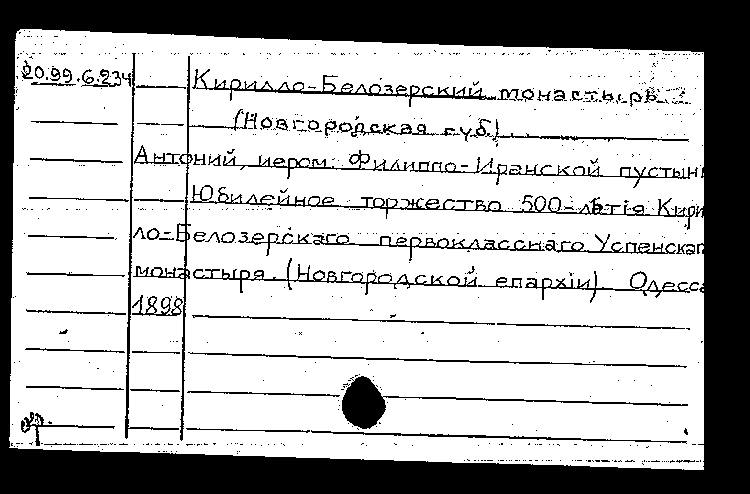 20.99.6.234 Кирилло-Белозерский монастырь
(Новгородская губ.)
Антоний, иером. Филиппо-Иранской пустын
Юбилейное торжество 500-лѣтія Кири
ло-Белозерскаго первокласснаго Успенскаг
монастыря. (Новгородской епархіи). Одесса
1898